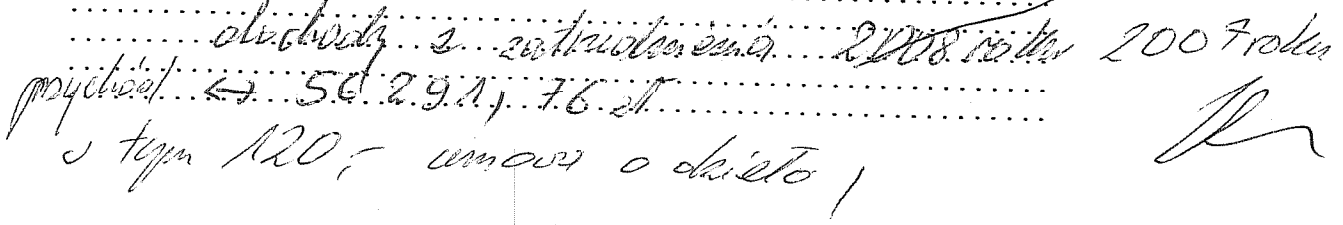 dochody z zatrudnienia 2008 roku 2007 roku
przychód <-> 56 291,76 zł
w tym 120,- umowa o dzieło,